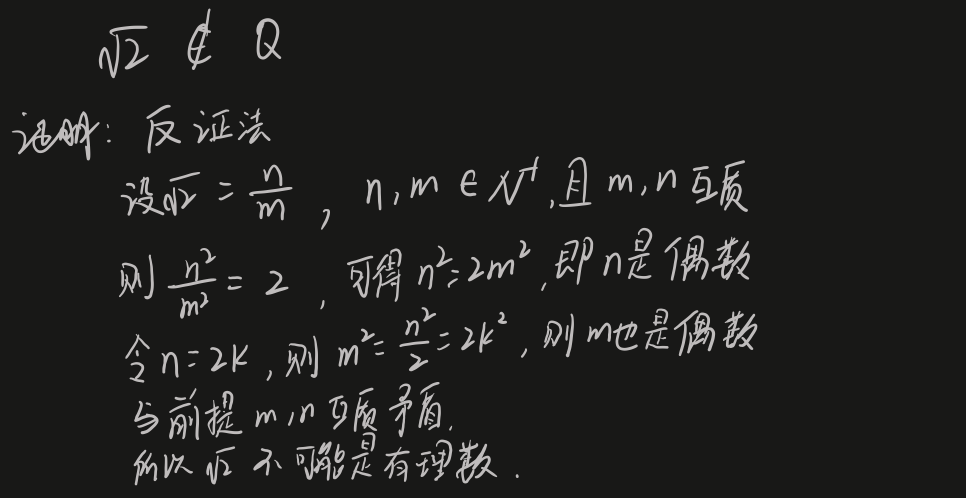 √2 ∉ Q
证明: 反证法
设√2 = n/m , n,m ∈ N⁺,且 m,n 互质
则 n²/m² = 2 , 可得 n²=2m²,即 n是偶数
令 n=2k,则 m²=n²/2=2k²,则 m也是偶数
与前提 m,n 互质矛盾.
所以 √2 不可能是有理数.